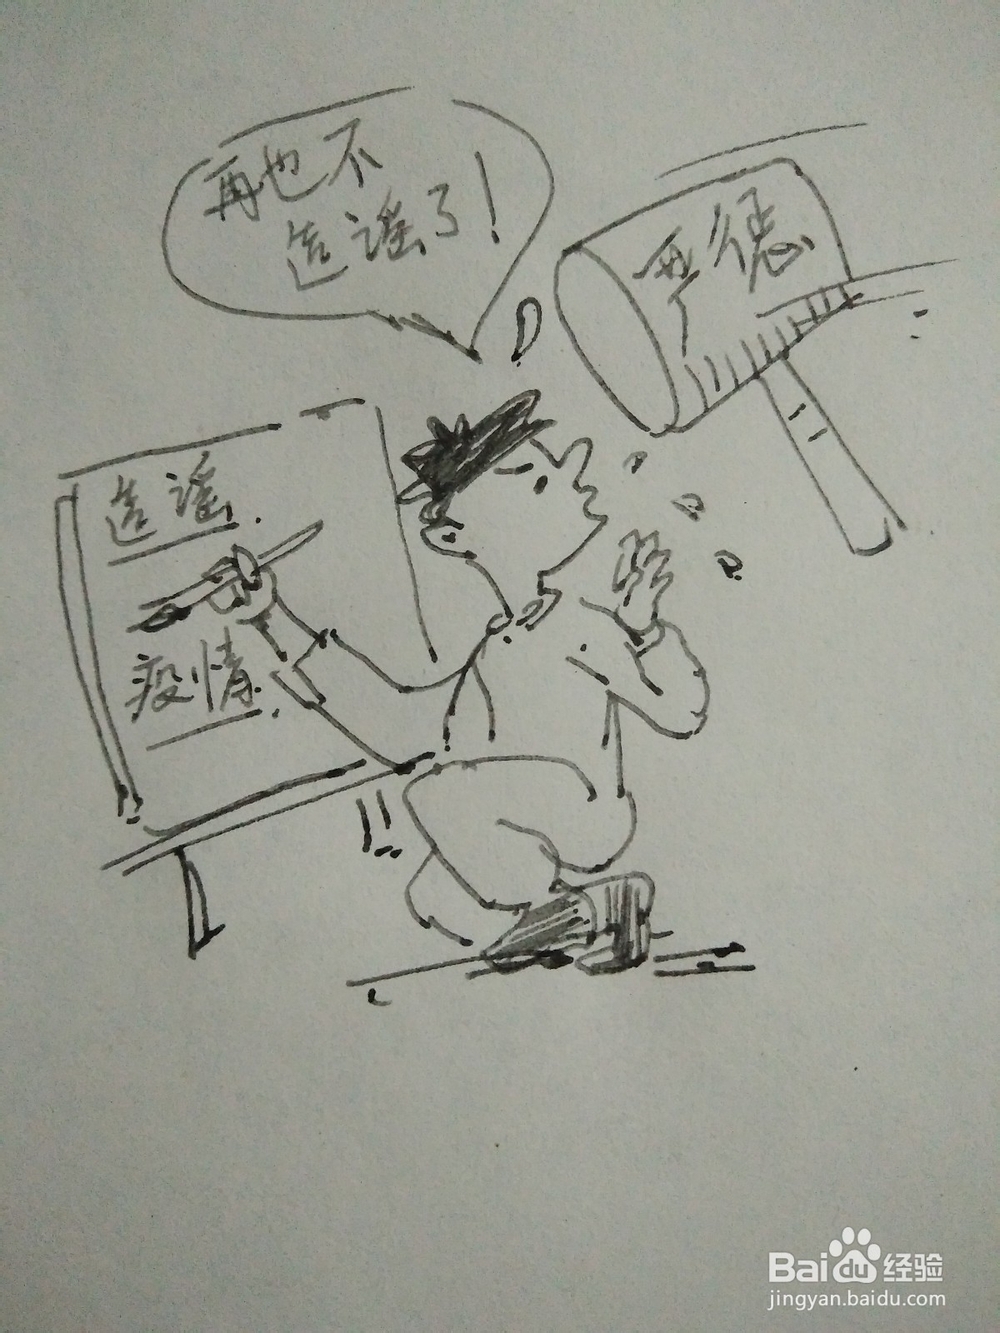 再也不
造谣了！
严惩
造谣
疫情
Baidu经验
jingyan.baidu.com